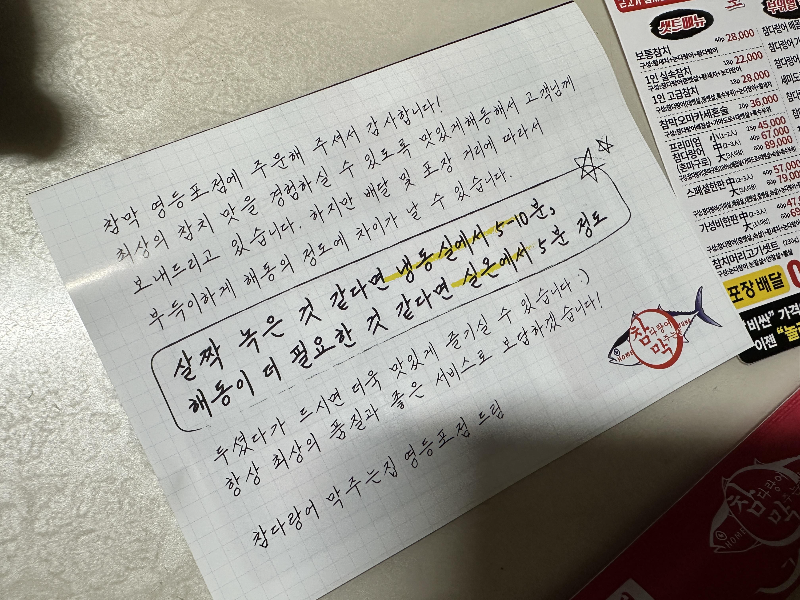 참막 영등포점에 주문해 주셔서 감사합니다!
최상의 참치 맛을 경험하실 수 있도록 맛있게해동해서 고객님께
보내드리고 있습니다. 하지만 배달 및 포장 거리에 따라서
부득이하게 해동의 정도에 차이가 날 수 있습니다.
살짝 녹은 것 같다면 냉동실에서 5-10분,
해동이 더 필요한 것 같다면 실온에서 5분 정도
두셨다가 드시면 더욱 맛있게 즐기실 수 있습니다 :)
항상 최상의 품질과 좋은 서비스로 보답하겠습니다!
참다랑어 막주는집 영등포점 드림
참다랑어
막주는집
HOME
셋트메뉴
보통참치 28,000
1인 실속참치 18p 22,000
1인 고급참치 18p 28,000
참막오마카세혼술 36,000
프리미엄 참다랑어 小(1~2人) 45,000
中(2~3人) 67,000
大(3~4人) 89,000
스페셜한판 中(2~3人) 57,000
大 79,000
가성비한판 中(2~3人)
참치머리고기세트
포장 배달
비싼" 가격
이젠
참다랑어
막주는
HOME